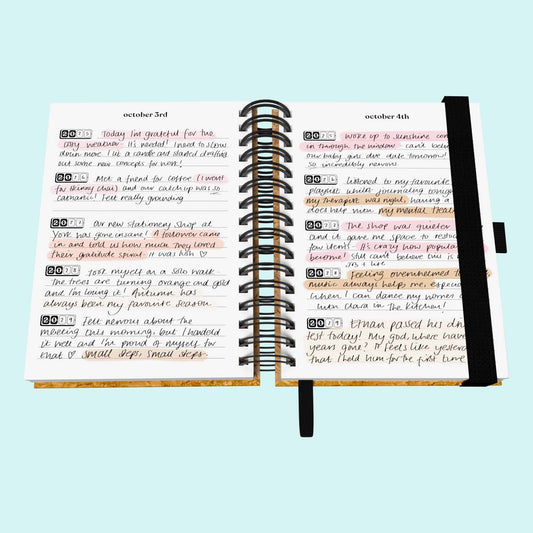 october 3rd
2025 Today I'm grateful for the
cosy weather - it's needed! I need to slow
down more! Lit a candle and started drafting
out some new concepts for work!
2026 Met a friend for coffee (I went
for skinny chai) and our catch up was so
cathartic! Felt really grounding
2027 Our new stationery shop at
York was gone insane! A follower came
in and told us how much they loved
their gratitude spiral - it was huh ♡
2028 Took myself on a solo walk -
the trees are turning orange and gold
and I'm loving it! Autumn has
always been my favourite season.
2029 Felt nervous about the
meeting this morning, but I handled
it well and I'm proud of myself for
that ♡ small steps, small steps.
october 4th
2025 Woke up to sunshine
in through the window - can't
our baby girls due date tomorrow!
so incredibly nervous
2026 Listened to my favourite
playlist whilst journaling tonight
my therapist was right, having a
does help with my mental
2027 The shop was quieter
and it gave me space to
few items! - It's crazy how popular
become! Still can't believe this is
my life
2028 Feeling overwhelmed
music always helps me,
when I can dance my
with Clara in the kitchen!
2029 Ethan passed his
test today! My god, where have
years gone? It feels like
that I held him for the first time